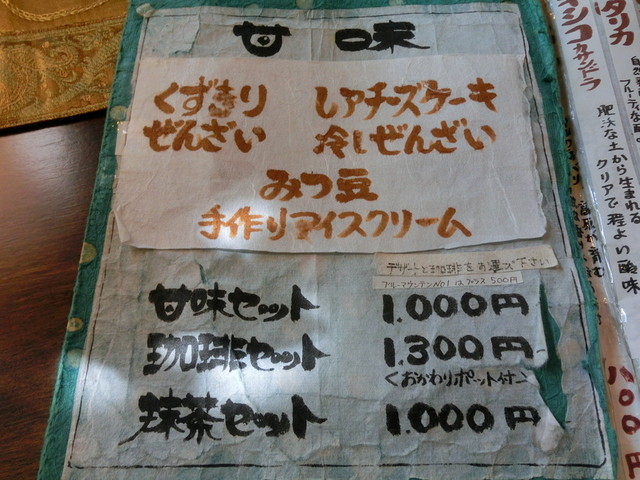 甘 味
くずきり レアチーズケーキ
ぜんざい 冷しぜんざい
みつ豆
手作りアイスクリーム
デザートと珈琲をお選び下さい
ブルーマウンテンNo1はプラス500円
甘味セット 1.000円
珈琲セット 1.300円
<おかわりポット付>
抹茶セット 1.000円
タリカ
シコ カサンドラ
肥沃な土から生まれる
クリアで程よい酸味